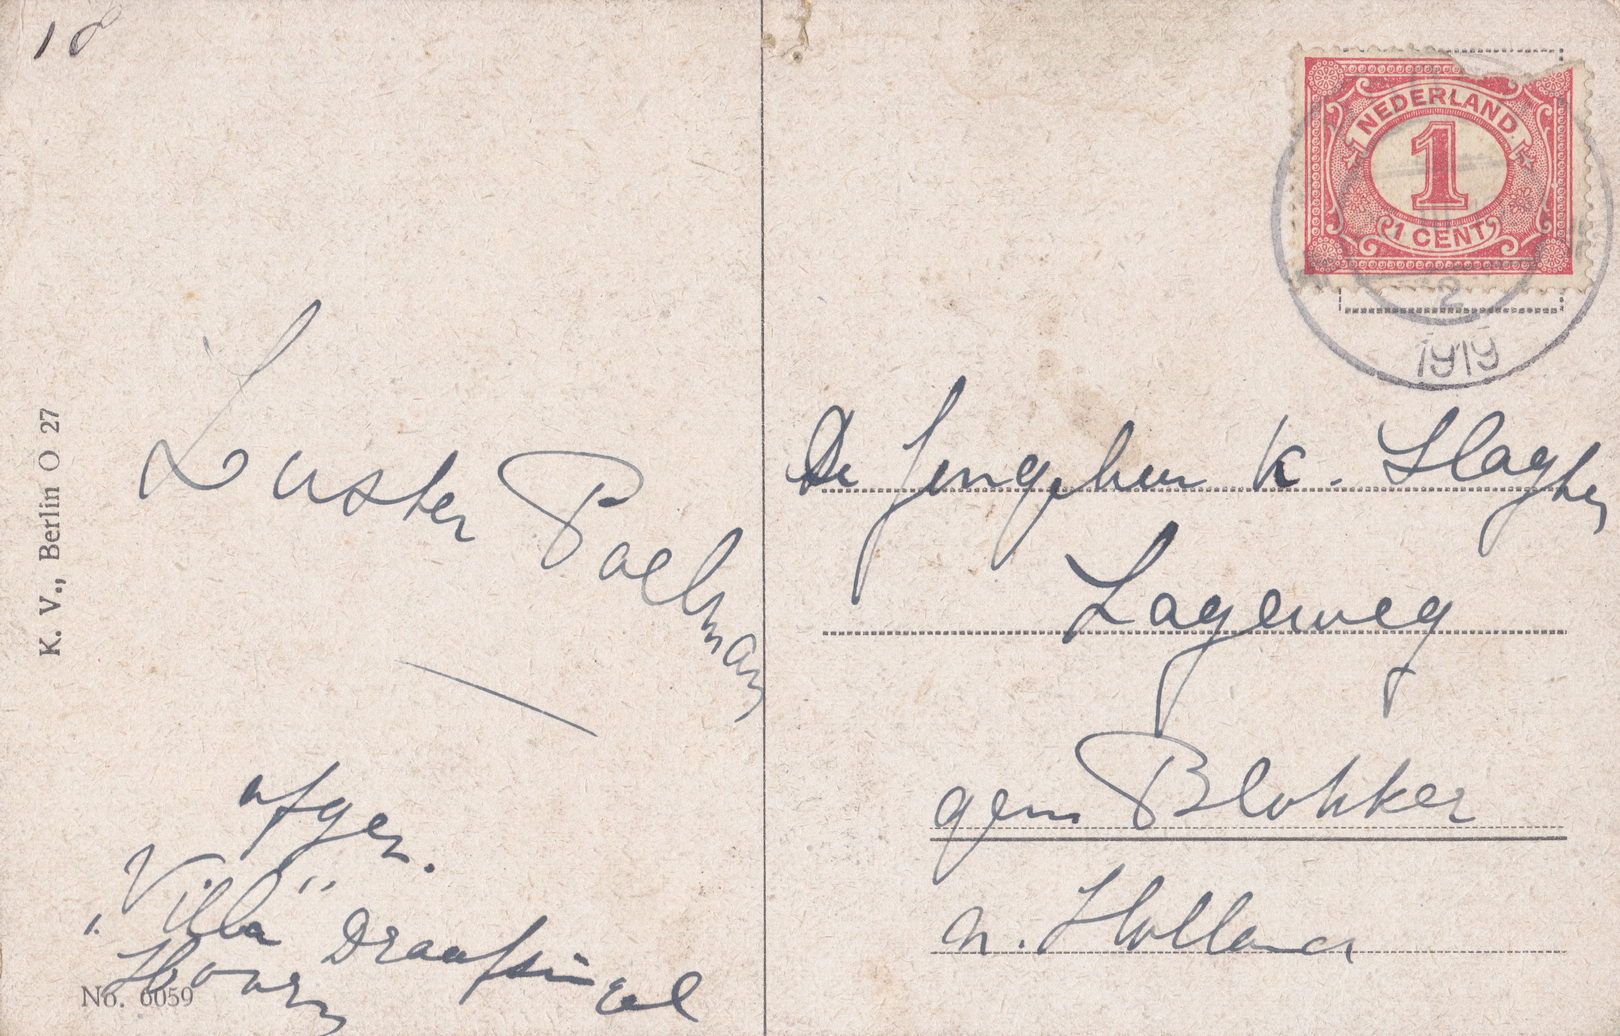 18
K. V., Berlin O 27
Zuster Poelman
afz.
„Villa" Draafsingel
Hoorn
No. 6059
NEDERLAND
1
1 CENT
2
1919
De Jongeheer K. Slagter
Lageweg
gem Blokker
N. Holland